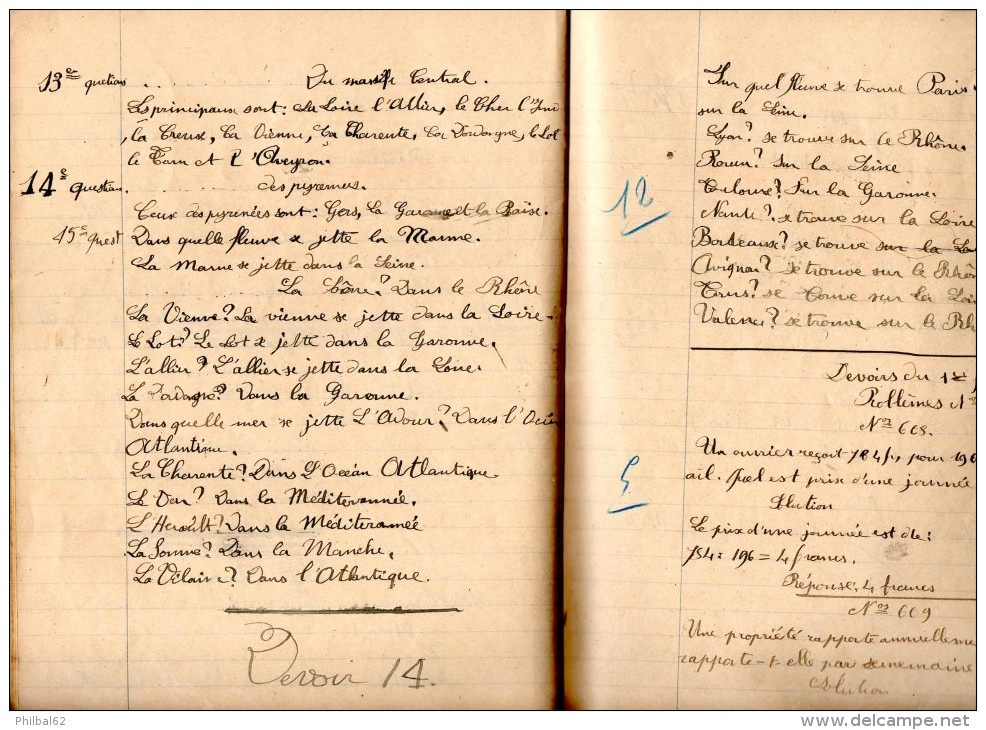 13e questions ... Du massif Central.
Les principaux sont: La Loire l'Allier, le Cher l'Ind
, la Creuse, La Vienne, La Charente, La Dordogne, le Lot
le Tarn et l'Aveyron.
14e question. des pyrenees.
Ceux des pyrénées sont: Gers, La Garonne et la Baïse.
15e quest Dans quelle fleuve se jette la Marne.
La Marne se jette dans la Seine.
La Saône? Dans le Rhône
La Vienne? La vienne se jette dans la Loire.
Le Lot? Le Lot se jette dans la Garonne.
L'allier? L'allier se jette dans la Loire.
La Dordogne? Dans la Garonne.
Dans quelle mer se jette L'Adour? Dans l'Océan
Atlantique.
La Charente? Dans L'Océan Atlantique
Le Var? Dans la Méditerrannée.
L'Herault? Dans la Méditerannée
La Somme? Dans la Manche.
La Vilaine? Dans l'Atlantique.
Devoir 14.
Sur quel fleuve se trouve Paris.
sur la Seine.
Lyon? se trouve sur le Rhône.
Rouen? Sur la Seine
12
Toulouse? Sur la Garonne.
Nante? se trouve sur la Loire
Bordeaux? se trouve sur la Ga
Avignon? se trouve sur le Rhôn
Tours? se trouve sur la Loi
Valence? se trouve sur le Rh
Devoirs du 1er
Problèmes N
Nos 668.
Un ouvrier reçoit 784f, pour 196
5
ail. Quel est prix d'une journée
Solution
Le prix d'une journée est de:
784 : 196 = 4 francs.
Réponse: 4 francs
Nos 669
Une propriété rapporte annuelleme
rapporte-t-elle par sememaine
Solution
Philbal62
www.delcampe.net